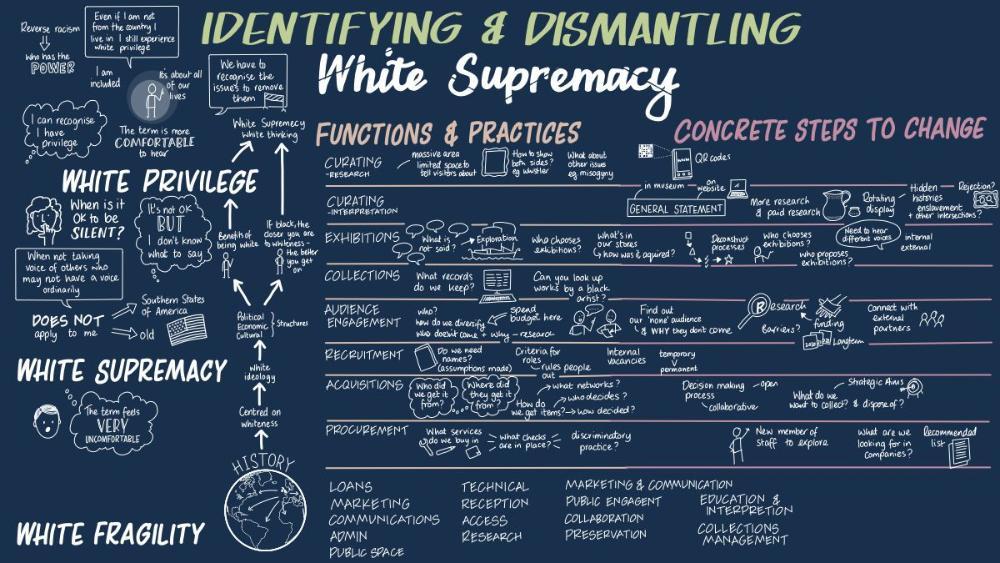 IDENTIFYING & DISMANTLING
White Supremacy
Reverse racism
who has the
POWER
Even if I am not
from the country I
live in I still experience
white privilege
I am
included
It's about all
of our
lives
The term is more
COMFORTABLE
to hear
I can recognise
I have
privilege
We have to
recognise the
issues to remove
them
White Supremacy
white thinking
WHITE PRIVILEGE
When is it
OK to be
SILENT?
It's not OK
BUT
I don't know
what to say
Benefit of
being white
If black, the
closer you are
to whiteness -
the better
you get
on
When not taking
voice of others who
may not have a voice
ordinarily
DOES NOT
apply to me
Southern States
of America
old
Political
Economic
Cultural
Structures
white
ideology
WHITE SUPREMACY
The term feels
VERY
UNCOMFORTABLE
Centred on
whiteness
HISTORY
WHITE FRAGILITY
FUNCTIONS & PRACTICES
CONCRETE STEPS TO CHANGE
CURATING
-RESEARCH
massive area
limited space to
tell visitors about
How to show
both sides?
eg whistler
What about
other issues
eg misogyny
QR codes
CURATING
-INTERPRETATION
in museum
on
website
GENERAL STATEMENT
More research
& paid research
Rotating
display
Hidden
histories
enslavement
+ other intersections?
Rejection?
EXHIBITIONS
What is
not said?
Exploration
Who chooses
exhibitions?
what's in
our stores
how was & aquired?
Deconstruct
processes
who chooses
exhibitions?
who proposes
exhibitions?
Need to hear
different voices
internal
external
COLLECTIONS
What records
do we keep?
Can you look up
works by a black
artist?
AUDIENCE
ENGAGEMENT
who?
how do we diversify
who doesn't come + why - research
Spend
budget here
Find out
our 'none' audience
& WHY they don't come
Research
Barriers?
funding
Longterm
Connect with
external
partners
RECRUITMENT
Do we need
names?
(assumptions made)
Criteria for
roles
rules people
out
Internal
vacancies
temporary
permanent
ACQUISITIONS
Who did
we get it
from?
Where did
they get it
from?
How do
we get items?
what networks?
who decides?
how decided?
Decision making
process
open
collaborative
What do we
want to collect? & dispose of?
Strategic Aims
PROCUREMENT
What services
do we buy in
What checks
are in place?
discriminatory
practice?
New member of
Staff to explore
What are we
looking for in
companies?
Recommended
list
LOANS
MARKETING
COMMUNICATIONS
ADMIN
PUBLIC SPACE
TECHNICAL
RECEPTION
ACCESS
RESEARCH
MARKETING & COMMUNICATION
PUBLIC ENGAGENT
COLLABORATION
PRESERVATION
EDUCATION &
INTERPRETION
COLLECTIONS
MANAGEMENT